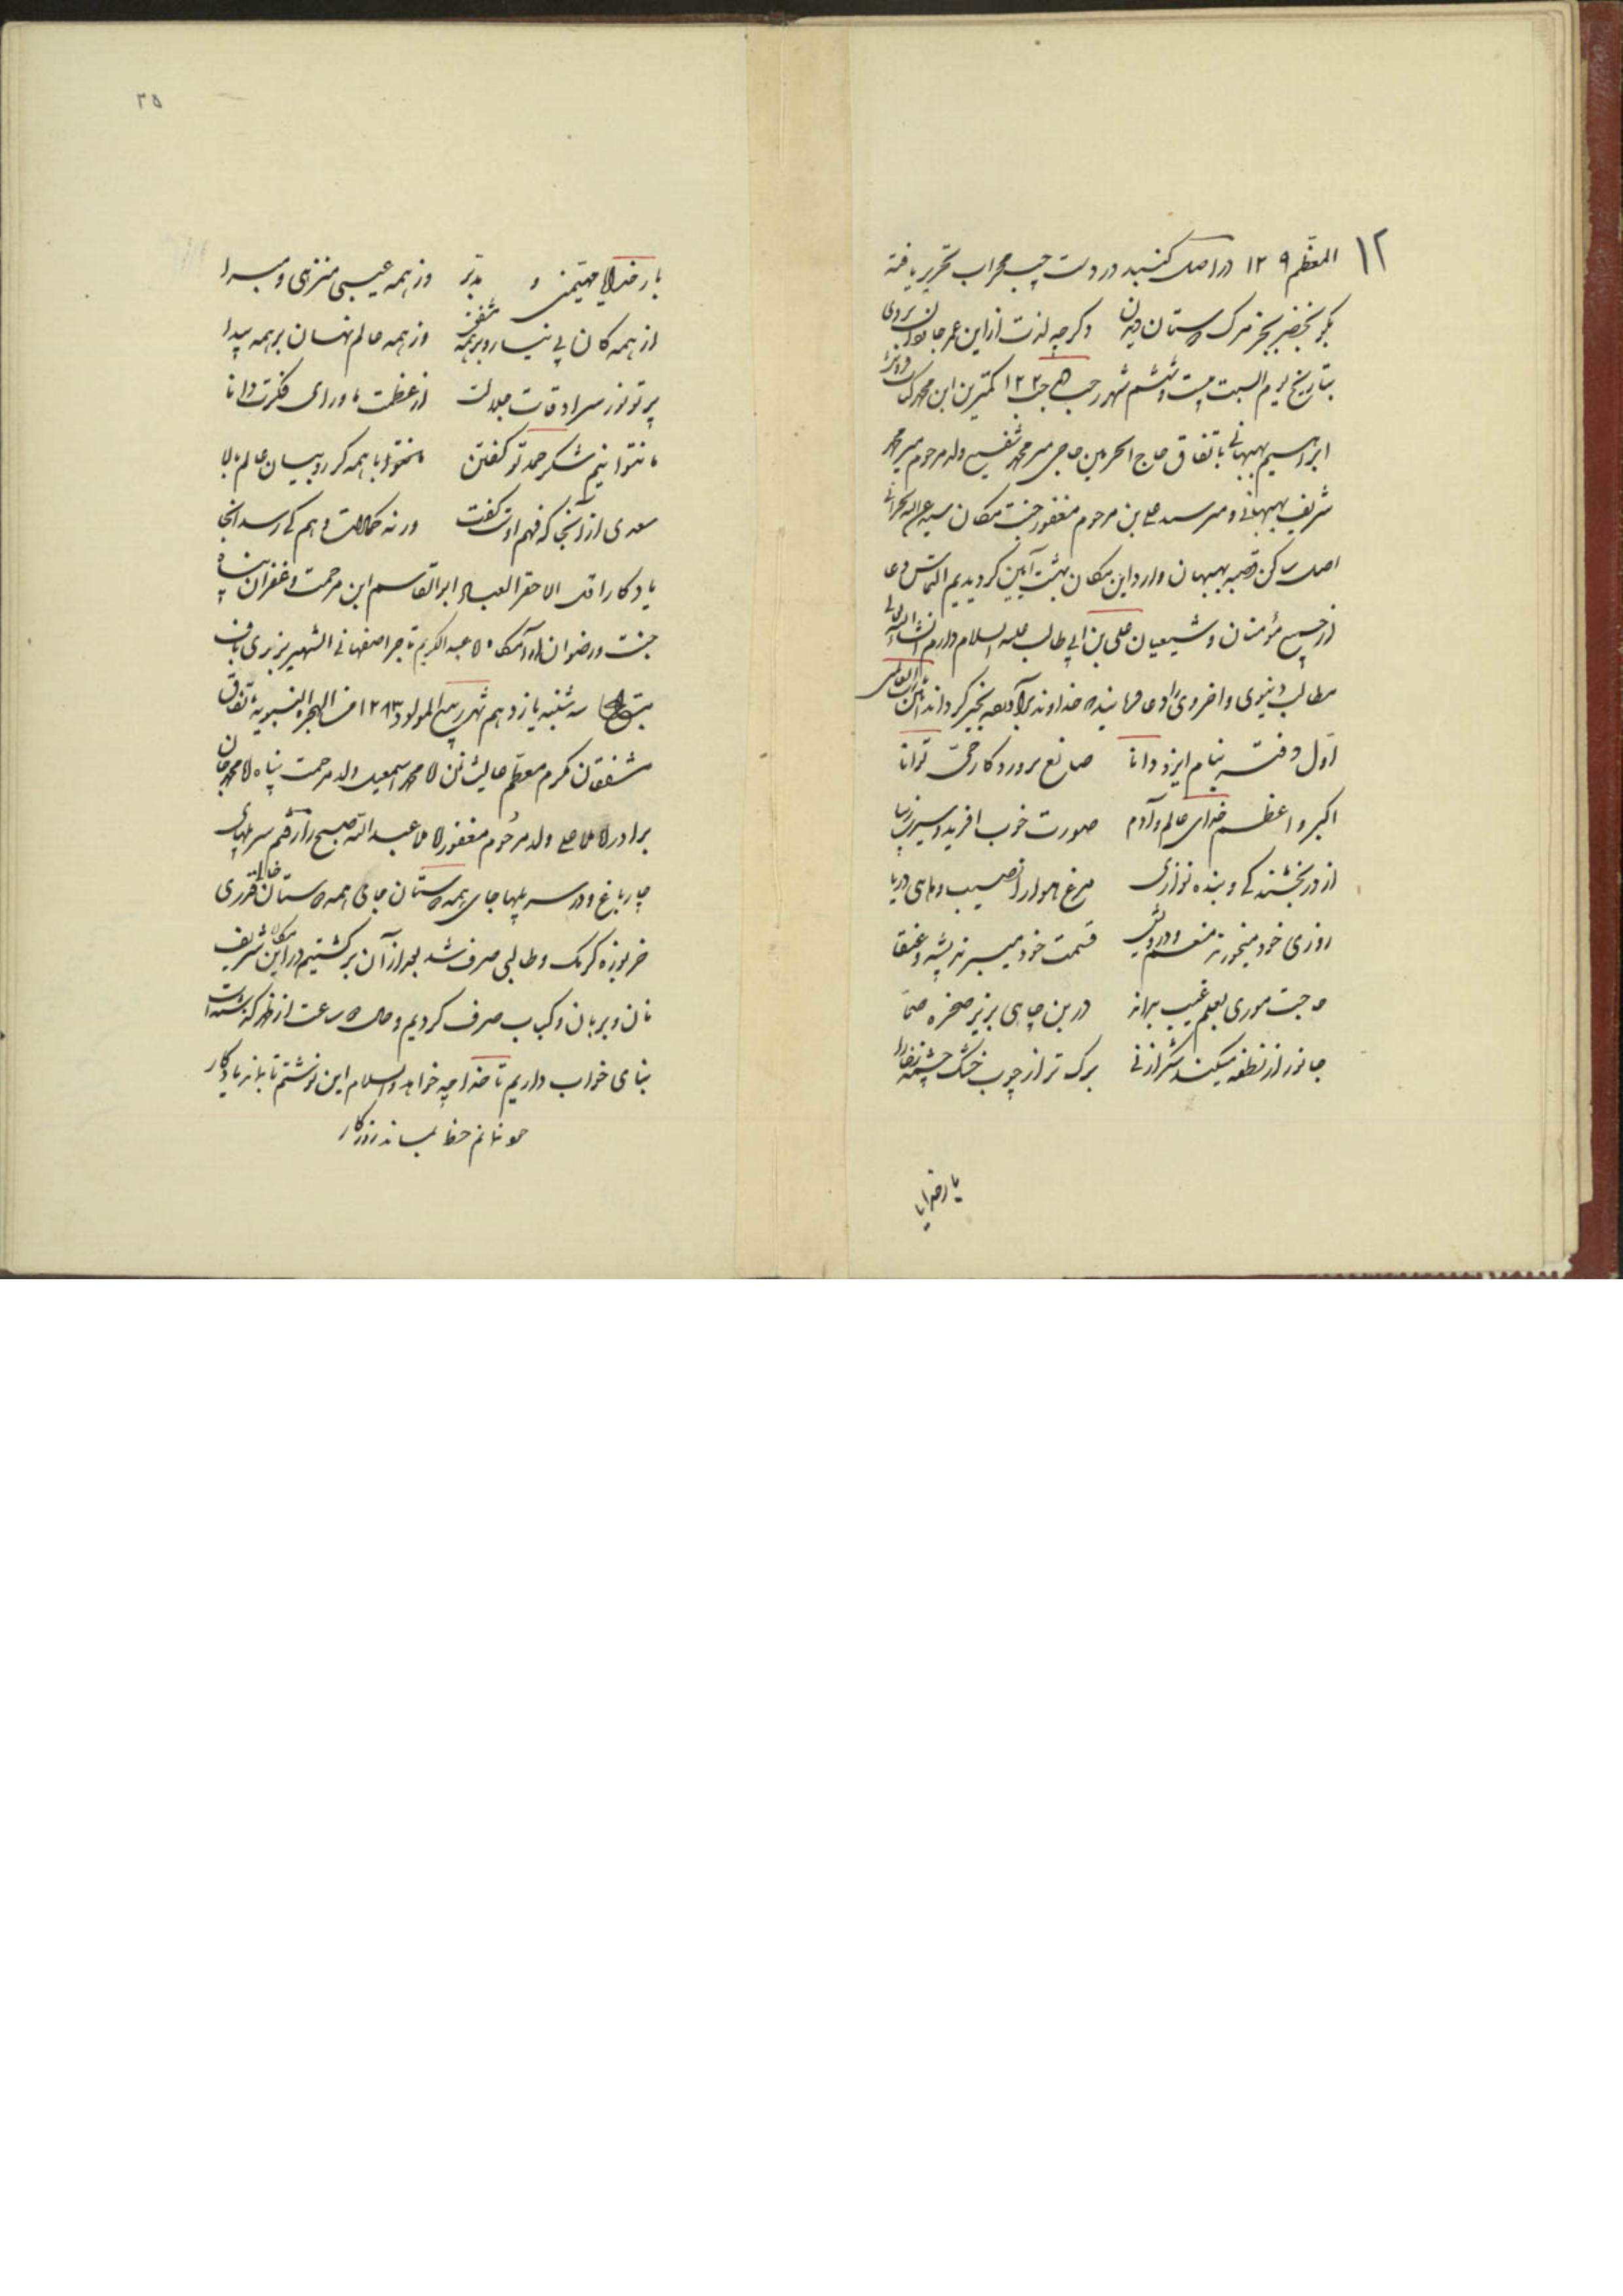 ۱۲
المعظم ۱۲۹ در اصل گنبد در دست چپ محراب تحریر یافته
بگو بخضر بجز مرک دوستان دیدن دگر چه لذت از این عمر جاودان بردی
بتاریخ یوم السبت بیست و ششم شهر رجب ۱۲۲ کمترین ابن محمد
ابراهیم بهبهانی باتفاق حاج الحرمین حاجی میر محمد شفیع ولد مرحوم میر محمد
شریف بهبهانی و میر سید علی بن مرحوم مغفور جنت مکان سید عبدالله بحرانی
اصل ساکن قصبه بهبهان وارد این مکان بهشت آیین کردیدیم التماس دعا
از جمیع مؤمنان و شیعیان علی بن ابی طالب علیه السلام دارم انشاء الله تعالی
مطالب دنیوی و اخروی را دعا فرمایند خداوند برآورده بخیر کرداند آمین یا رب العالمین
اول دفتر بنام ایزد دانا صانع پروردکار حی توانا
اکبر و اعظم خدای عالم و آدم صورت خوب افرید و سیرت زیبا
از در بخشندکی و بنده نوازی مرغ هوا را نصیب و ماهی دریا
روزی خود میخورند منعم و درویش قسمت خود میبرند پشه و عنقا
حاجت موری بعلم غیب بداند در بن چاهی بزیر صخره صما
جانور از نطفه میکند شکر از نی برک تر از چوب خشک و چشمه ز خارا
بار خدایا
۳۵
بار خدایا مهیمنی و مدبر وز همه عیبی منزهی و مبرا
از همه کان بی نیاز و بر همه مشفق وز همه عالم نهان و بر همه پیدا
پرتو نور سرادقات جلالت از عظمت ماورای فکرت دانا
ما نتوانیم شکر حمد تو کفتن با همه کروبیان عالم بالا
سعدی از آنجا که فهم اوست کفت ورنه کمالات وهم کی رسد انجا
یادکار اقل الاحقر العباد ابوالقاسم ابن مرحمت و غفران پناه
جنت و رضوان آرامکاه ملا عبدالکریم تاجر اصفهانی الشهیر بزری باف
بتاریخ سه شنبه یازدهم شهر ربیع المولود ۱۲۸۳ من الهجره النبویه باتفاق
مشفقان مکرم معظم عالیشان ملا محمد اسمعیل ولد مرحمت پناه ملا محمد جان
برادر ملا علی ولد مرحوم مغفور ملا عبدالله صبح را رفتیم سر پلهای
چارباغ و در سر پلها جای همه دوستان جای همه دوستان خالی قدری
خربوزه کرمک و طالبی صرف شد بعد از آن برکشتیم در این مکان شریف
نان و بریان و کباب صرف کردیم و حال ۵ ساعت از ظهر کذشته است
بنای خواب داریم تا خدا چه خواهد والسلام این نوشتم تا بماند یادکار
من نمانم خط بماند روزکار